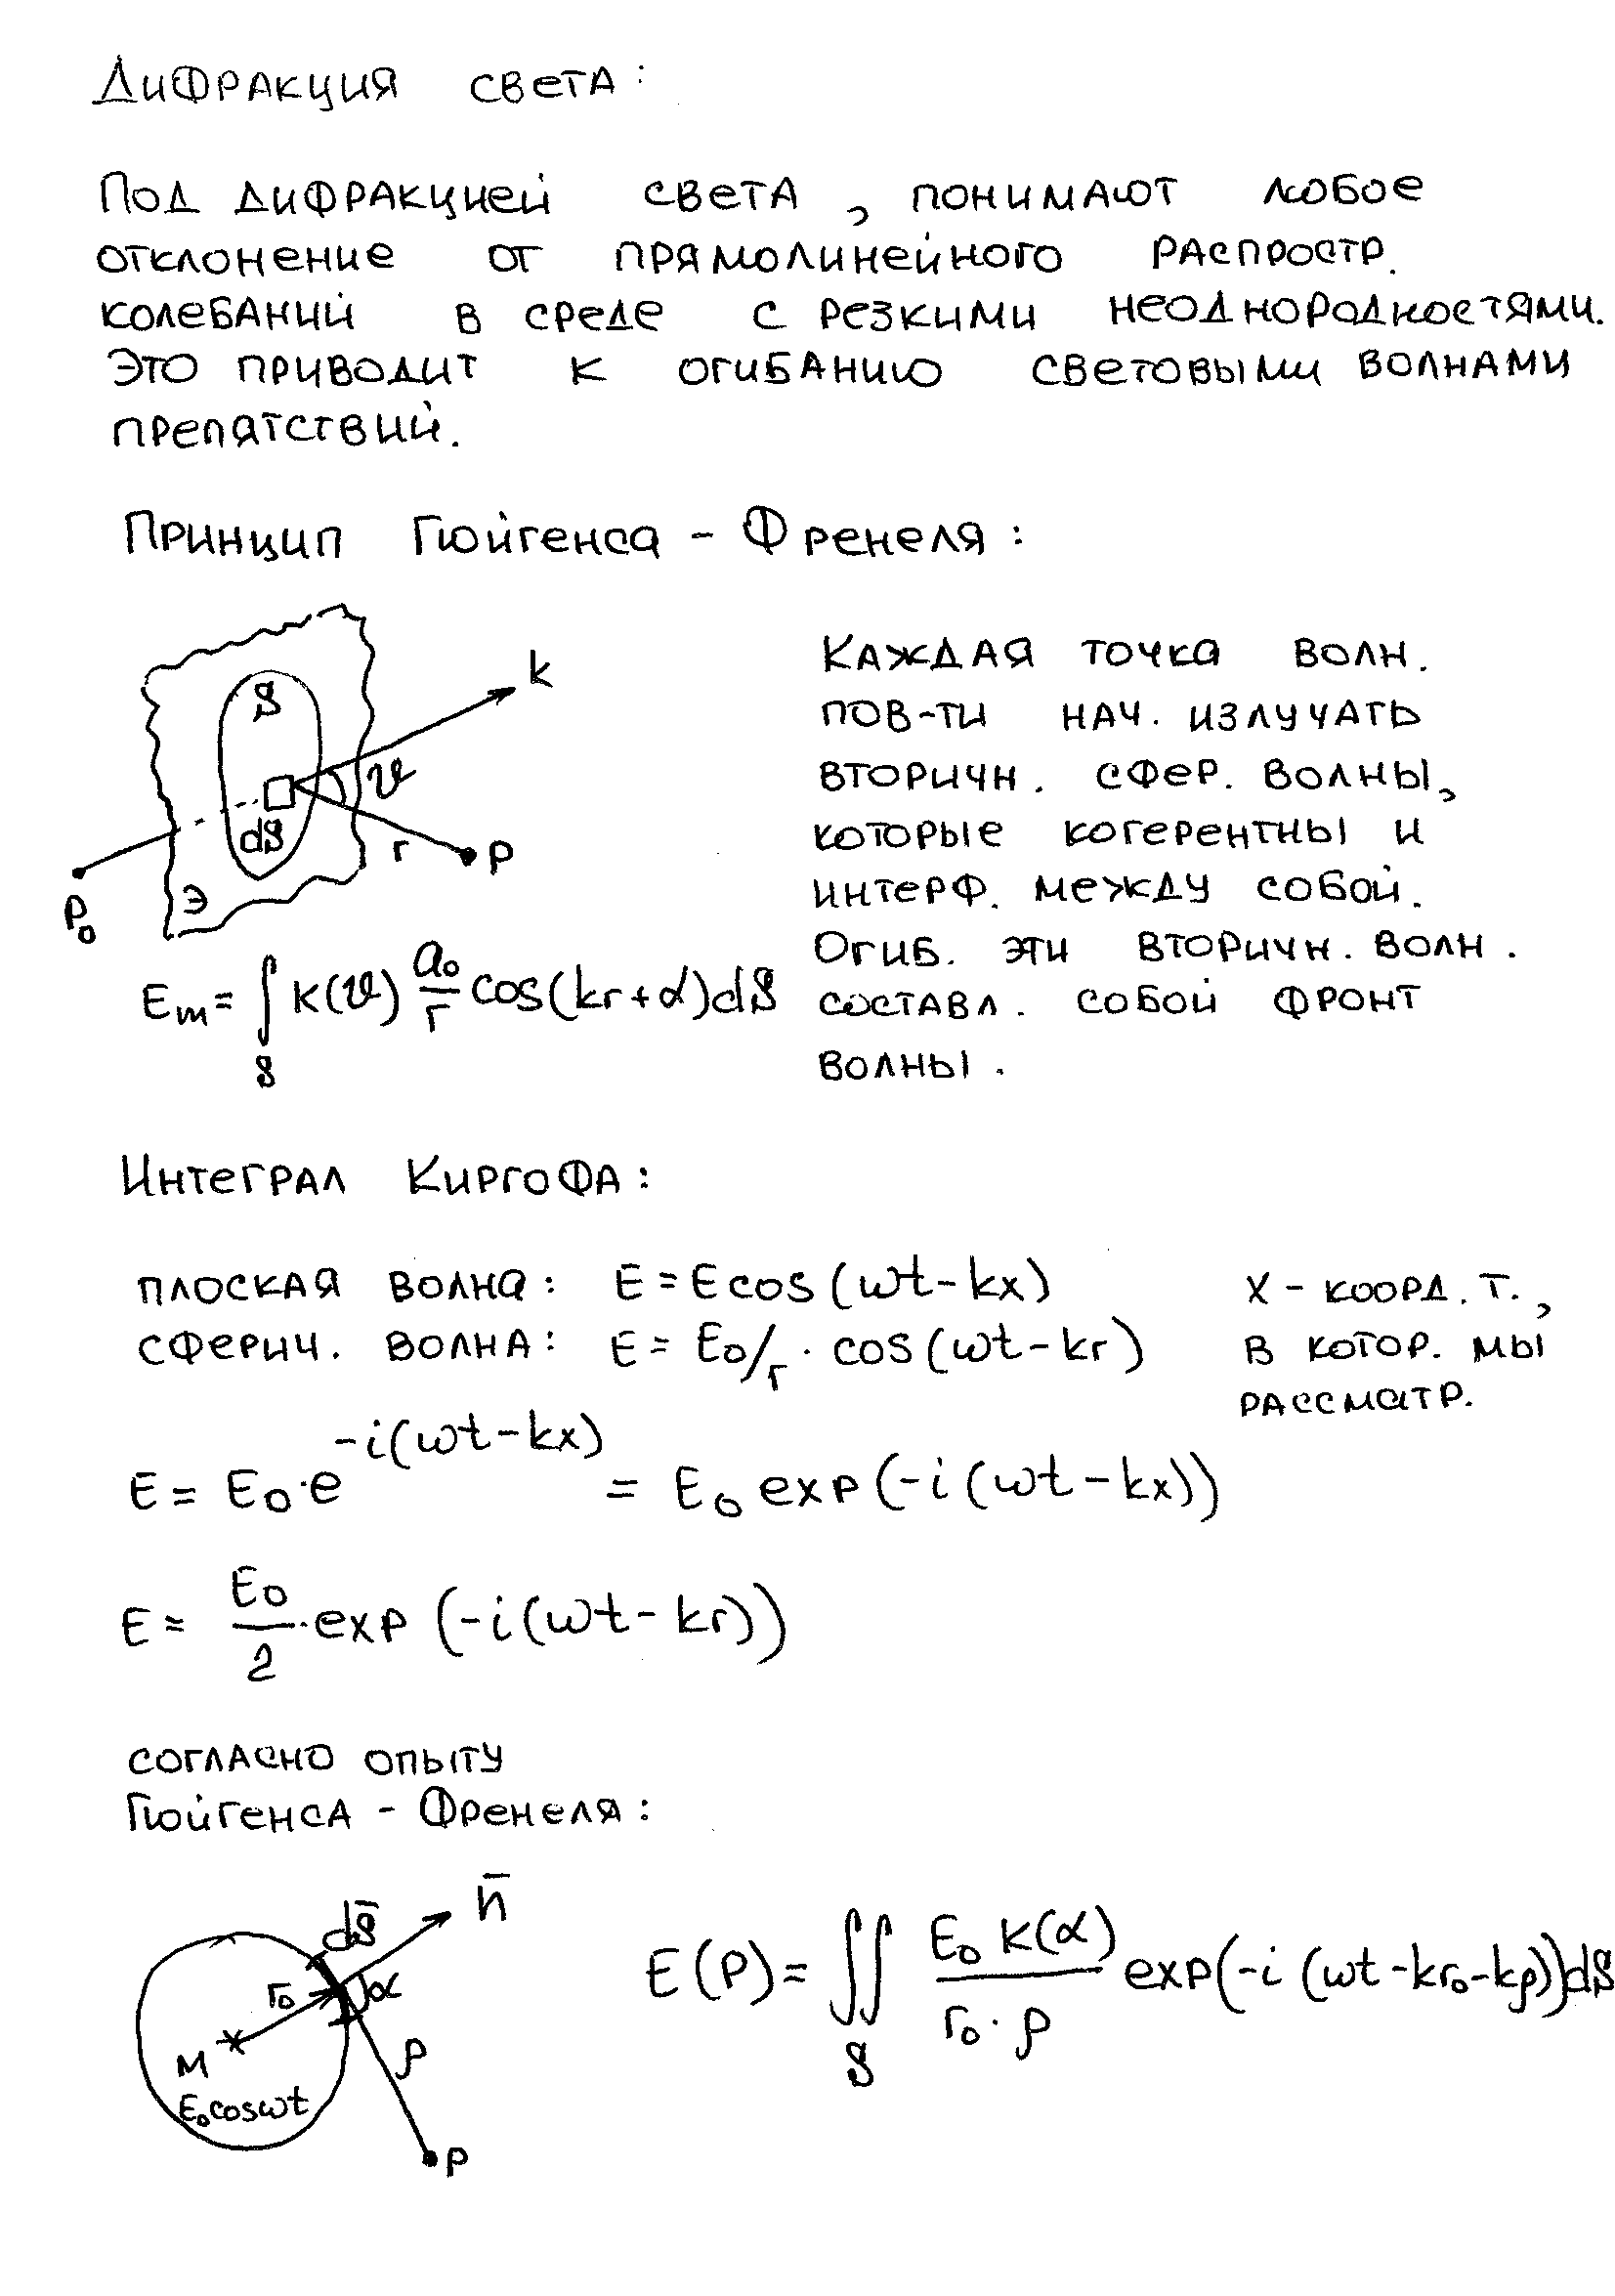 Дифракция света:
Под дифракцией света, понимают любое
отклонение от прямолинейного распростр.
колебаний в среде с резкими неоднородностями.
Это приводит к огибанию световыми волнами
препятствий.
Принцип Гюйгенса - Френеля:
S
k
ϑ
dS
r
P
P₀
Э
E_m = ∫_S K(ϑ) a₀/r cos(kr + α)dS
Каждая точка волн.
пов-ти нач. излучать
вторичн. сфер. волны,
которые когерентны и
интерф. между собой.
Огиб. эти вторичн. волн.
составл. собой фронт
волны.
Интеграл Киргофа:
плоская волна: E = E cos(ωt - kx)
сферич. волна: E = E₀/r · cos(ωt - kr)
x - коорд. т.,
в котор. мы
рассматр.
E = E₀ · e^{-i(ωt - kx)} = E₀ exp(-i(ωt - kx))
E = E₀/2 · exp(-i(ωt - kr))
согласно опыту
Гюйгенса - Френеля:
dS̄
n̄
r₀
α
M
ρ
E₀cosωt
P
E(P) = ∬_S E₀ K(α)/(r₀ · ρ) exp(-i(ωt - kr₀ - kρ))dS